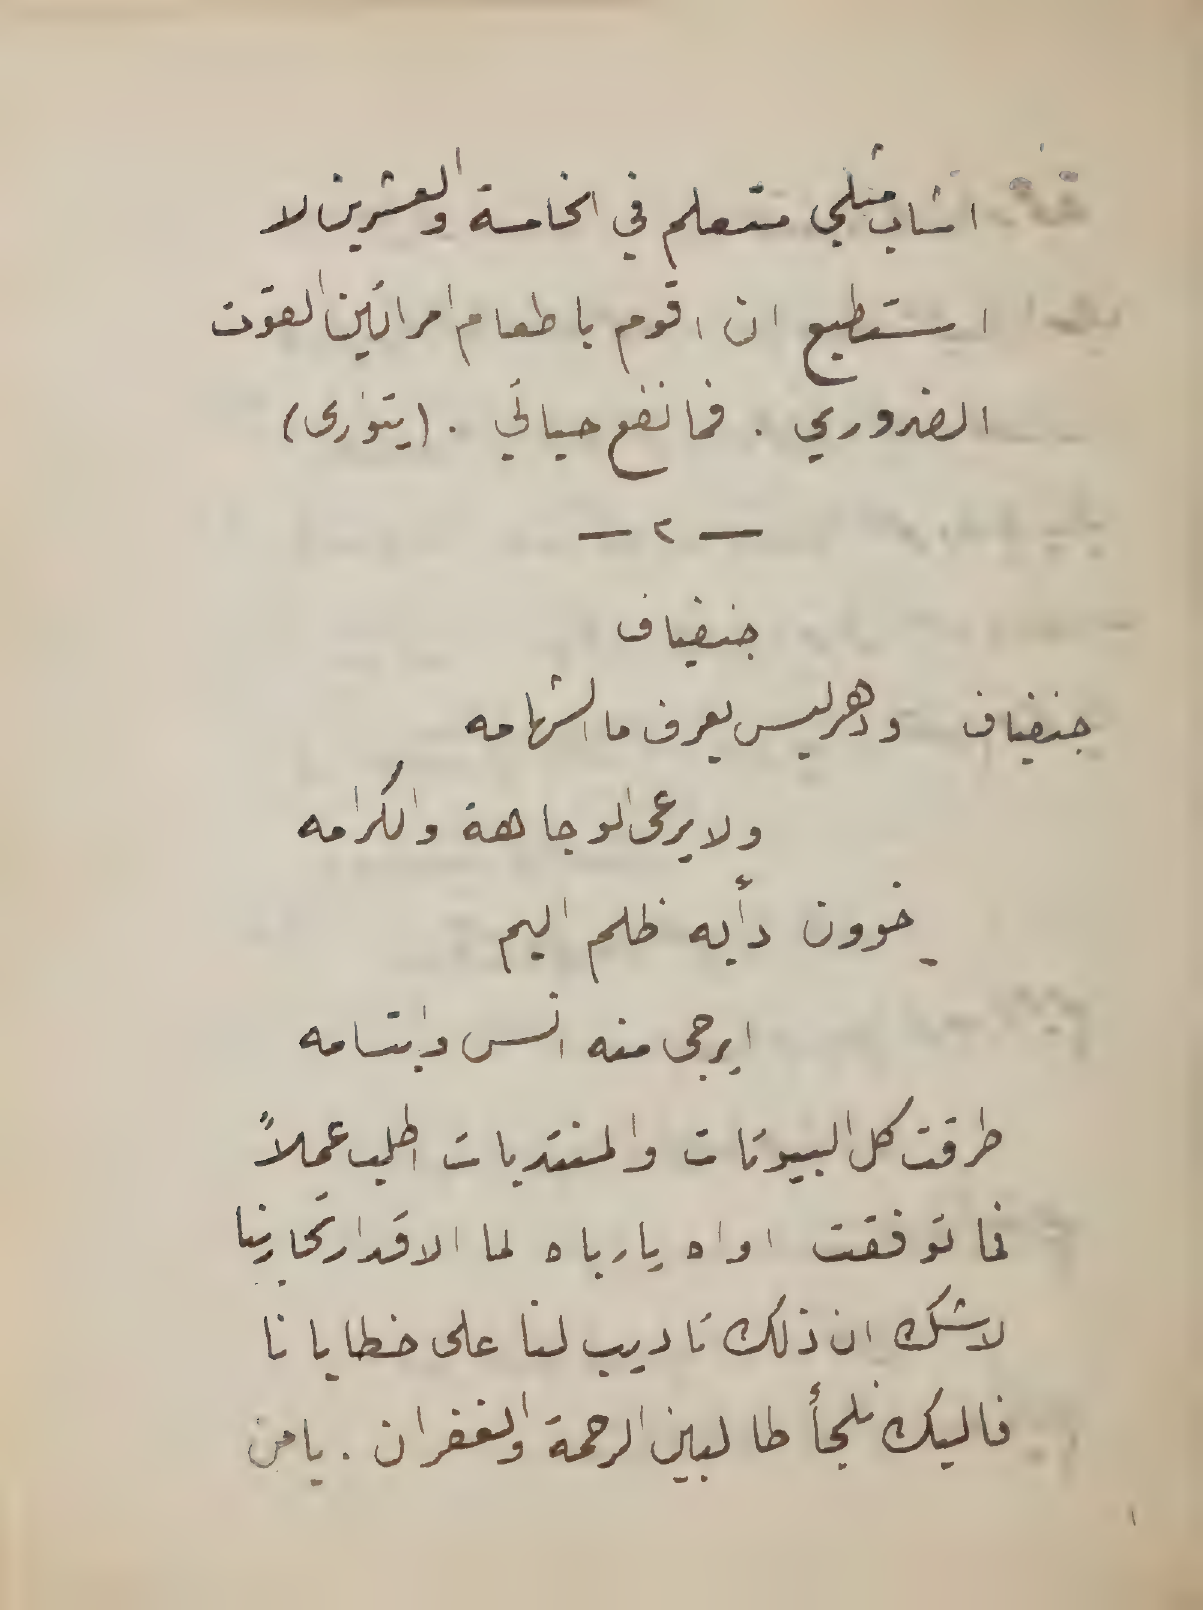 اشاب مثلي متعلم في الخامسة والعشرين لا
استطيع ان اقوم باطعام امرأتين القوت
الضروري . فما نفع حياتي . (يتوارى)
— ٢ —
جنفياف
جنفياف ودهر ليس يعرف ما الشهامه
ولا يرعى الوجاهة والكرامه
خوون دأبه ظلم اليم
ايرجى منه انس وابتسامه
طرقت كل البيوتات والمنتديات اطلب عملاً
فما توفقت اواه يارباه لما الاقدار تحاربنا
لا شك ان ذلك تاديب لنا على خطايانا
فاليك نلجأ طالبين الرحمة والغفران . يا من